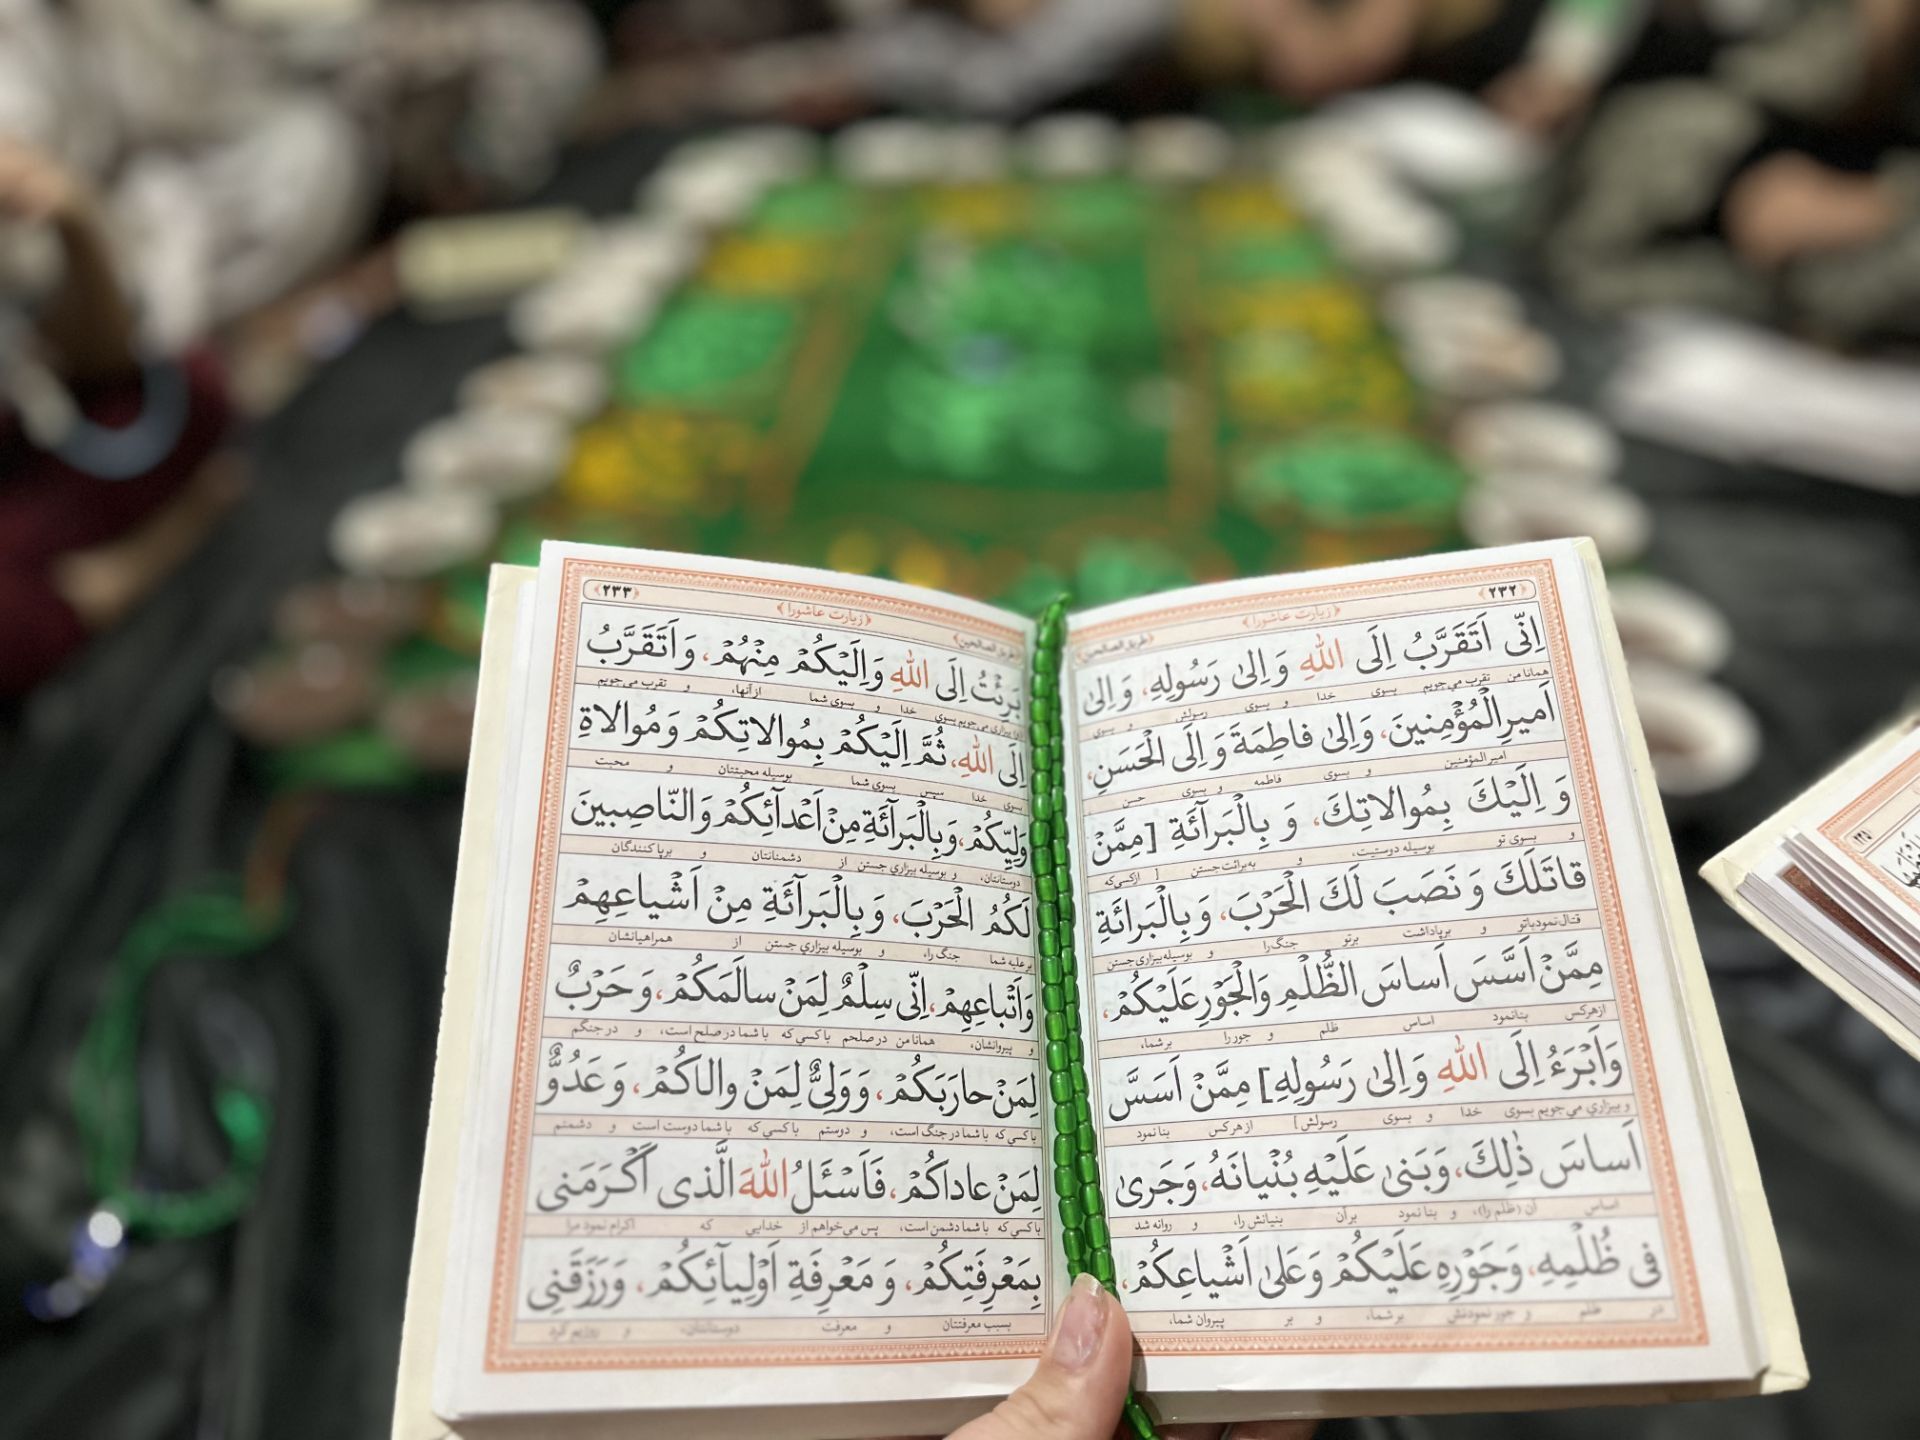 ﴿۲۳۲﴾
﴿زیارت عاشورا﴾
﴿طریق الصالحین﴾
اِنّی اَتَقَرَّبُ اِلَی اللهِ وَ اِلیٰ رَسُولِهِ، وَ اِلیٰ
همانا من تقرب می‌جویم بسوی خدا و بسوی رسولش و بسوی
اَمیرِالْمُؤْمِنینَ، وَ اِلیٰ فاطِمَةَ وَ اِلَی الْحَسَنِ،
امیرالمؤمنین و بسوی فاطمه و بسوی حسن
وَ اِلَیْكَ بِمُوالاتِكَ، وَ بِالْبَرآئَةِ [مِمَّنْ
و بسوی تو بوسیله دوستیت، و به برائت جستن [ از کسی که
قاتَلَكَ وَ نَصَبَ لَكَ الْحَرْبَ، وَ بِالْبَرائَةِ
قتال نمود با تو و برپا داشت برتو جنگ را و بوسیله بیزاری جستن
مِمَّنْ اَسَّسَ اَساسَ الظُّلْمِ وَالْجَوْرِ عَلَیْكُمْ،
از هرکس بنا نمود اساس ظلم و جور را بر شما،
وَ اَبْرَءُ اِلَی اللهِ وَ اِلیٰ رَسُولِهِ] مِمَّنْ اَسَسَّ
و بیزاری می جویم بسوی خدا و بسوی رسولش] از هرکس بنا نمود
اَساسَ ذٰلِكَ، وَ بَنیٰ عَلَیْهِ بُنْیانَهُ، وَ جَریٰ
اساس آن (ظلم را)، و بنا نمود بر آن بنیانش را، و روانه شد
فی ظُلْمِهِ، وَ جَوْرِهِ عَلَیْكُمْ وَ عَلیٰ اَشْیاعِكُمْ،
در ظلم و جور نمودنش بر شما، و بر پیروان شما،
﴿۲۳۳﴾
﴿زیارت عاشورا﴾
﴿طریق الصالحین﴾
بَرِئْتُ اِلَی اللهِ وَ اِلَیْكُمْ مِنْهُمْ، وَ اَتَقَرَّبُ
بیزاری می جویم بسوی خدا و بسوی شما از آنها، و تقرب می جویم
اِلَی اللهِ، ثُمَّ اِلَیْكُمْ بِمُوالاتِكُمْ وَ مُوالاةِ
بسوی خدا سپس بسوی شما بوسیله محبتتان و محبت
وَلِیِّكُمْ، وَ بِالْبَرآئَةِ مِنْ اَعْدآئِكُمْ وَ النّاصِبینَ
دوستانتان، و بوسیله بیزاری جستن از دشمنانتان و برپا کنندگان
لَكُمُ الْحَرْبَ، وَ بِالْبَرآئَةِ مِنْ اَشْیاعِهِمْ
برعلیه شما جنگ را، و بوسیله بیزاری جستن از همراهیانشان
وَ اَتْباعِهِمْ، اِنّی سِلْمٌ لِمَنْ سالَمَكُمْ، وَ حَرْبٌ
و پیروانشان، همانا من در صلحم با کسی که با شما در صلح است، و در جنگم
لِمَنْ حارَبَكُمْ، وَ وَلِیٌّ لِمَنْ والاكُمْ، وَ عَدُوٌّ
با کسی که با شما در جنگ است، و دوستم با کسی که با شما دوست است و دشمنم
لِمَنْ عاداكُمْ، فَاَسْئَلُ اللهَ الَّذی اَكْرَمَنی
با کسی که با شما دشمن است، پس می خواهم از خدایی که اکرام نمود مرا
بِمَعْرِفَتِكُمْ، وَ مَعْرِفَةِ اَوْلِیآئِكُمْ، وَ رَزَقَنِی
بسبب معرفتتان و معرفت دوستانتان، و روزیم کرد